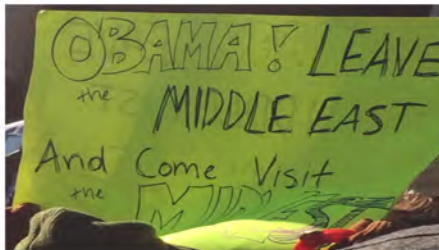 OBAMA! LEAVE
the MIDDLE EAST
And Come Visit
the